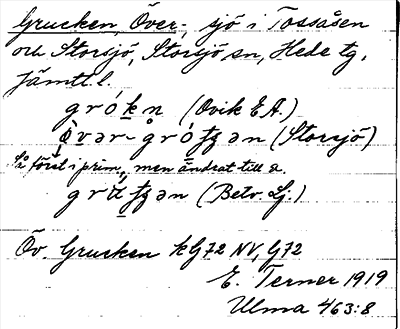 Grucken, Över-, sjö i Tossåsen
och Storsjö, Storsjö sn, Hede tg,
Jämtl. l.
grókn (Ovik E.A.)
över-gróţţən (Storsjö)
Så först i prim., men ändrat till a.
(Betv. Lj.)
Öv. Grucken kG72 NV, G72
E. Terner 1919
Ulma 463:8